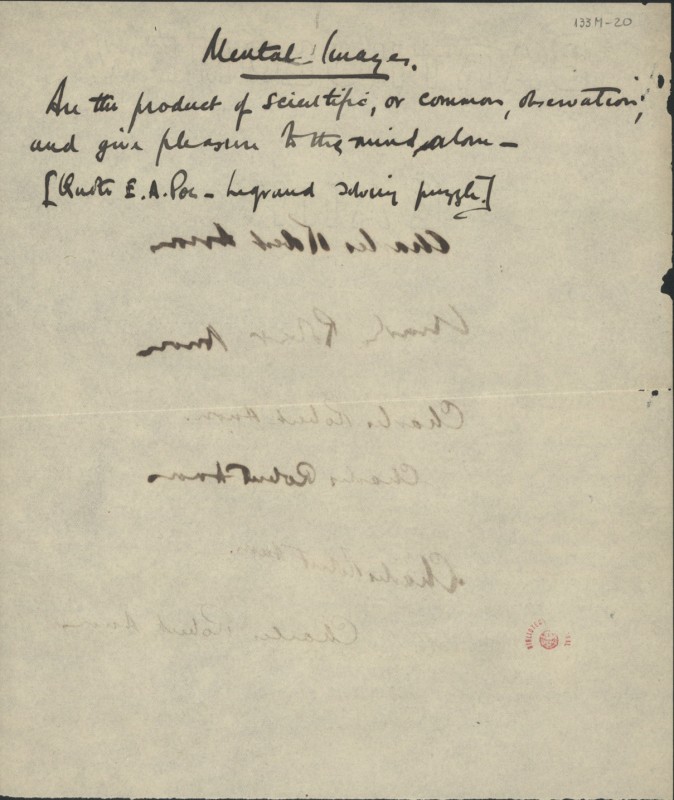 133M-20
Mental Images.
Are the product of scientific, or common, observation,
and give pleasure to the mind, alone —
[Quote E. A. Poe — Legrand solving puzzle.]
Charles Robert Anon
Charles Robert Anon
Charles Robert Anon.
Charles Robert Anon
Charles Robert Anon.
Charles Robert Anon